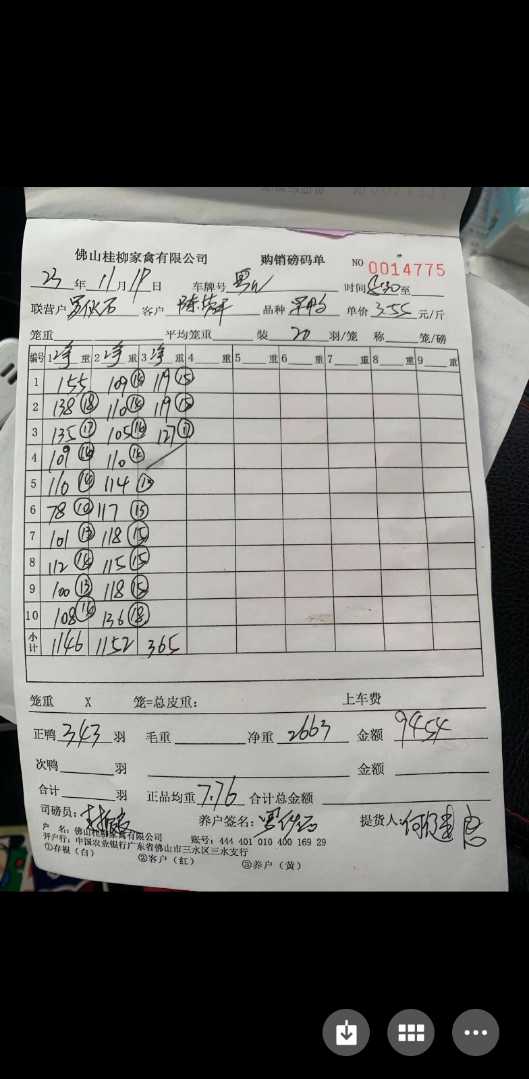 佛山桂柳家禽有限公司 购销磅码单 NO 0014775
23 年 11 月 17 日 车牌号 时间 至
联营户 客户 品种 单价 3.55 元/斤
笼重 平均笼重 装 20 羽/笼 称 笼/磅
编号 1 净 重 2 净 重 3 净 重 4 重 5 重 6 重 7 重 8 重 9 重
1 155 109 ⑭ 119 ⑮
2 138 ⑱ 110 ⑭ 119 ⑮
3 135 ⑰ 105 ⑭ 127 ⑰
4 109 ⑭ 110 ⑭
5 110 ⑭ 114 ⑮
6 78 ⑩ 117 ⑮
7 101 ⑬ 118 ⑮
8 112 ⑭ 115 ⑮
9 100 ⑬ 118 ⑮
10 108 ⑭ 136 ⑱
小计 1146 1152 365
笼重 X 笼=总皮重: 上车费
正鸭 343 羽 毛重 净重 2663 金额 9454
次鸭 羽 金额
合计 羽 正品均重 7.76 合计总金额
司磅员: 养户签名: 提货人:
户 名: 佛山桂柳家禽有限公司 账号: 444 401 010 400 169 29
开户行: 中国农业银行广东省佛山市三水区三水支行
①存根(白) ②客户(红) ③养户(黄)